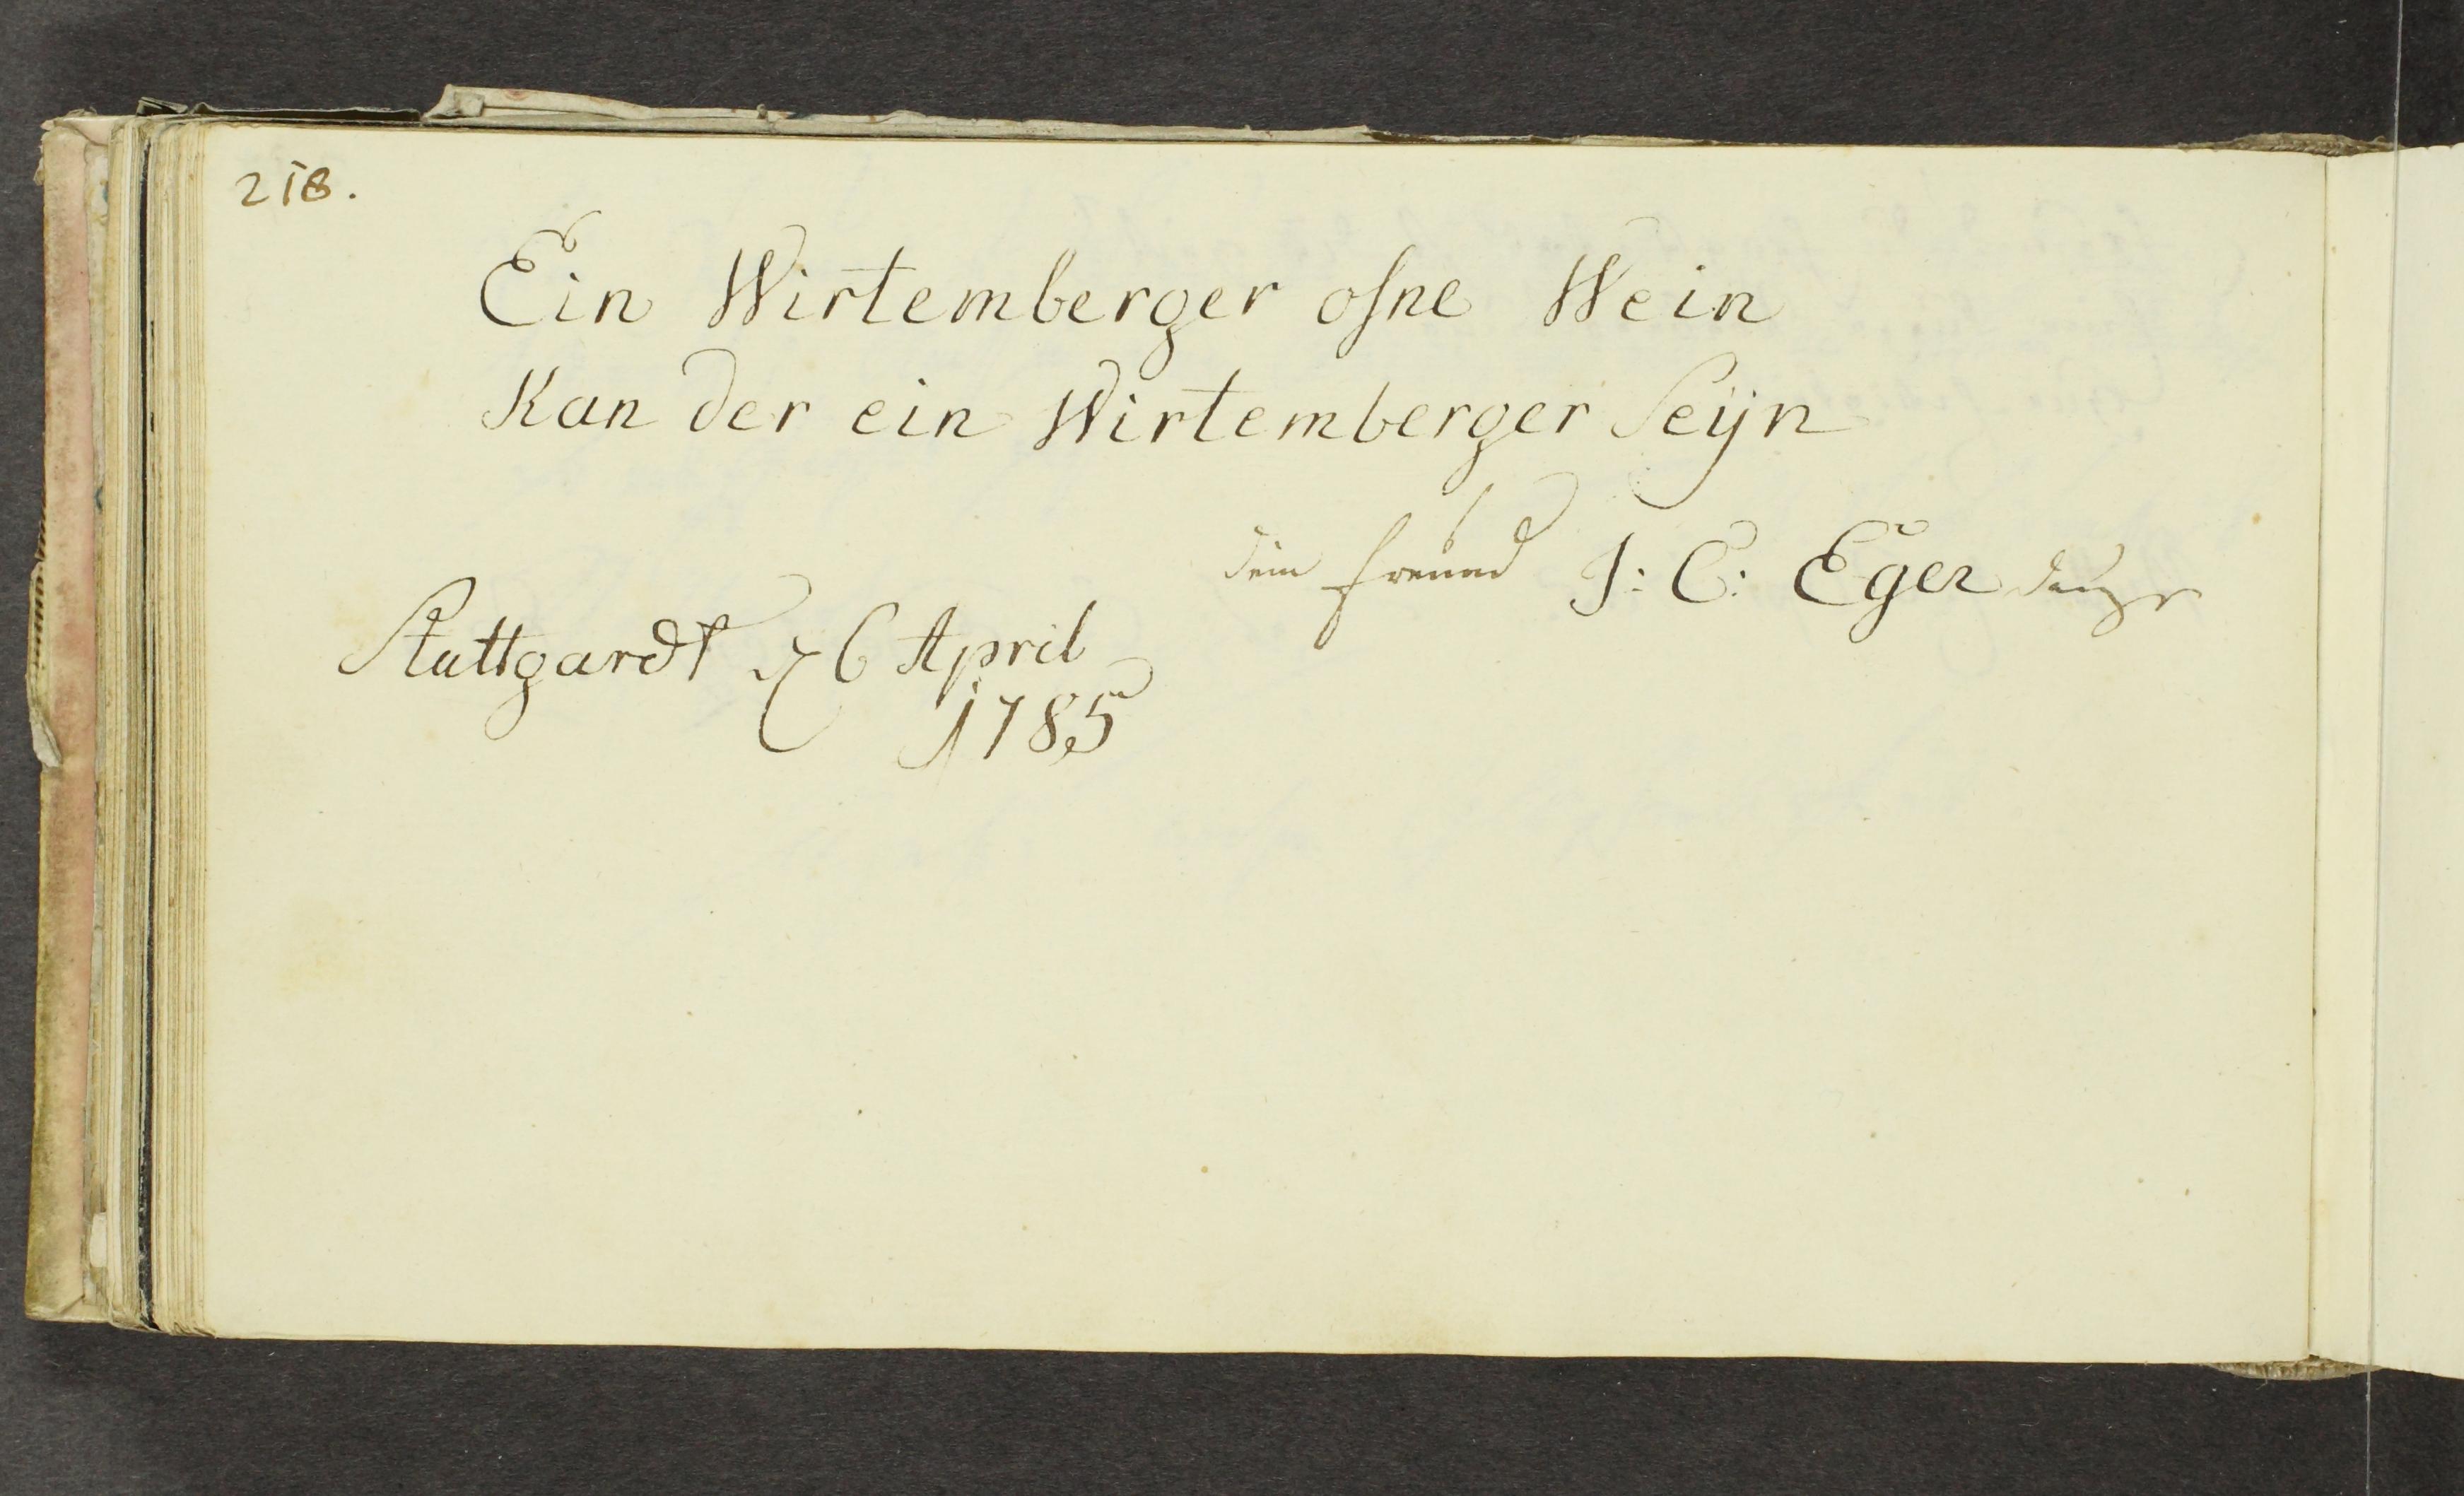 218.
Ein Wirtemberger ohne Wein
Kan der ein Wirtemberger Seÿn
dein freund J: C: Eger
Stuttgardt d 6 April
1785